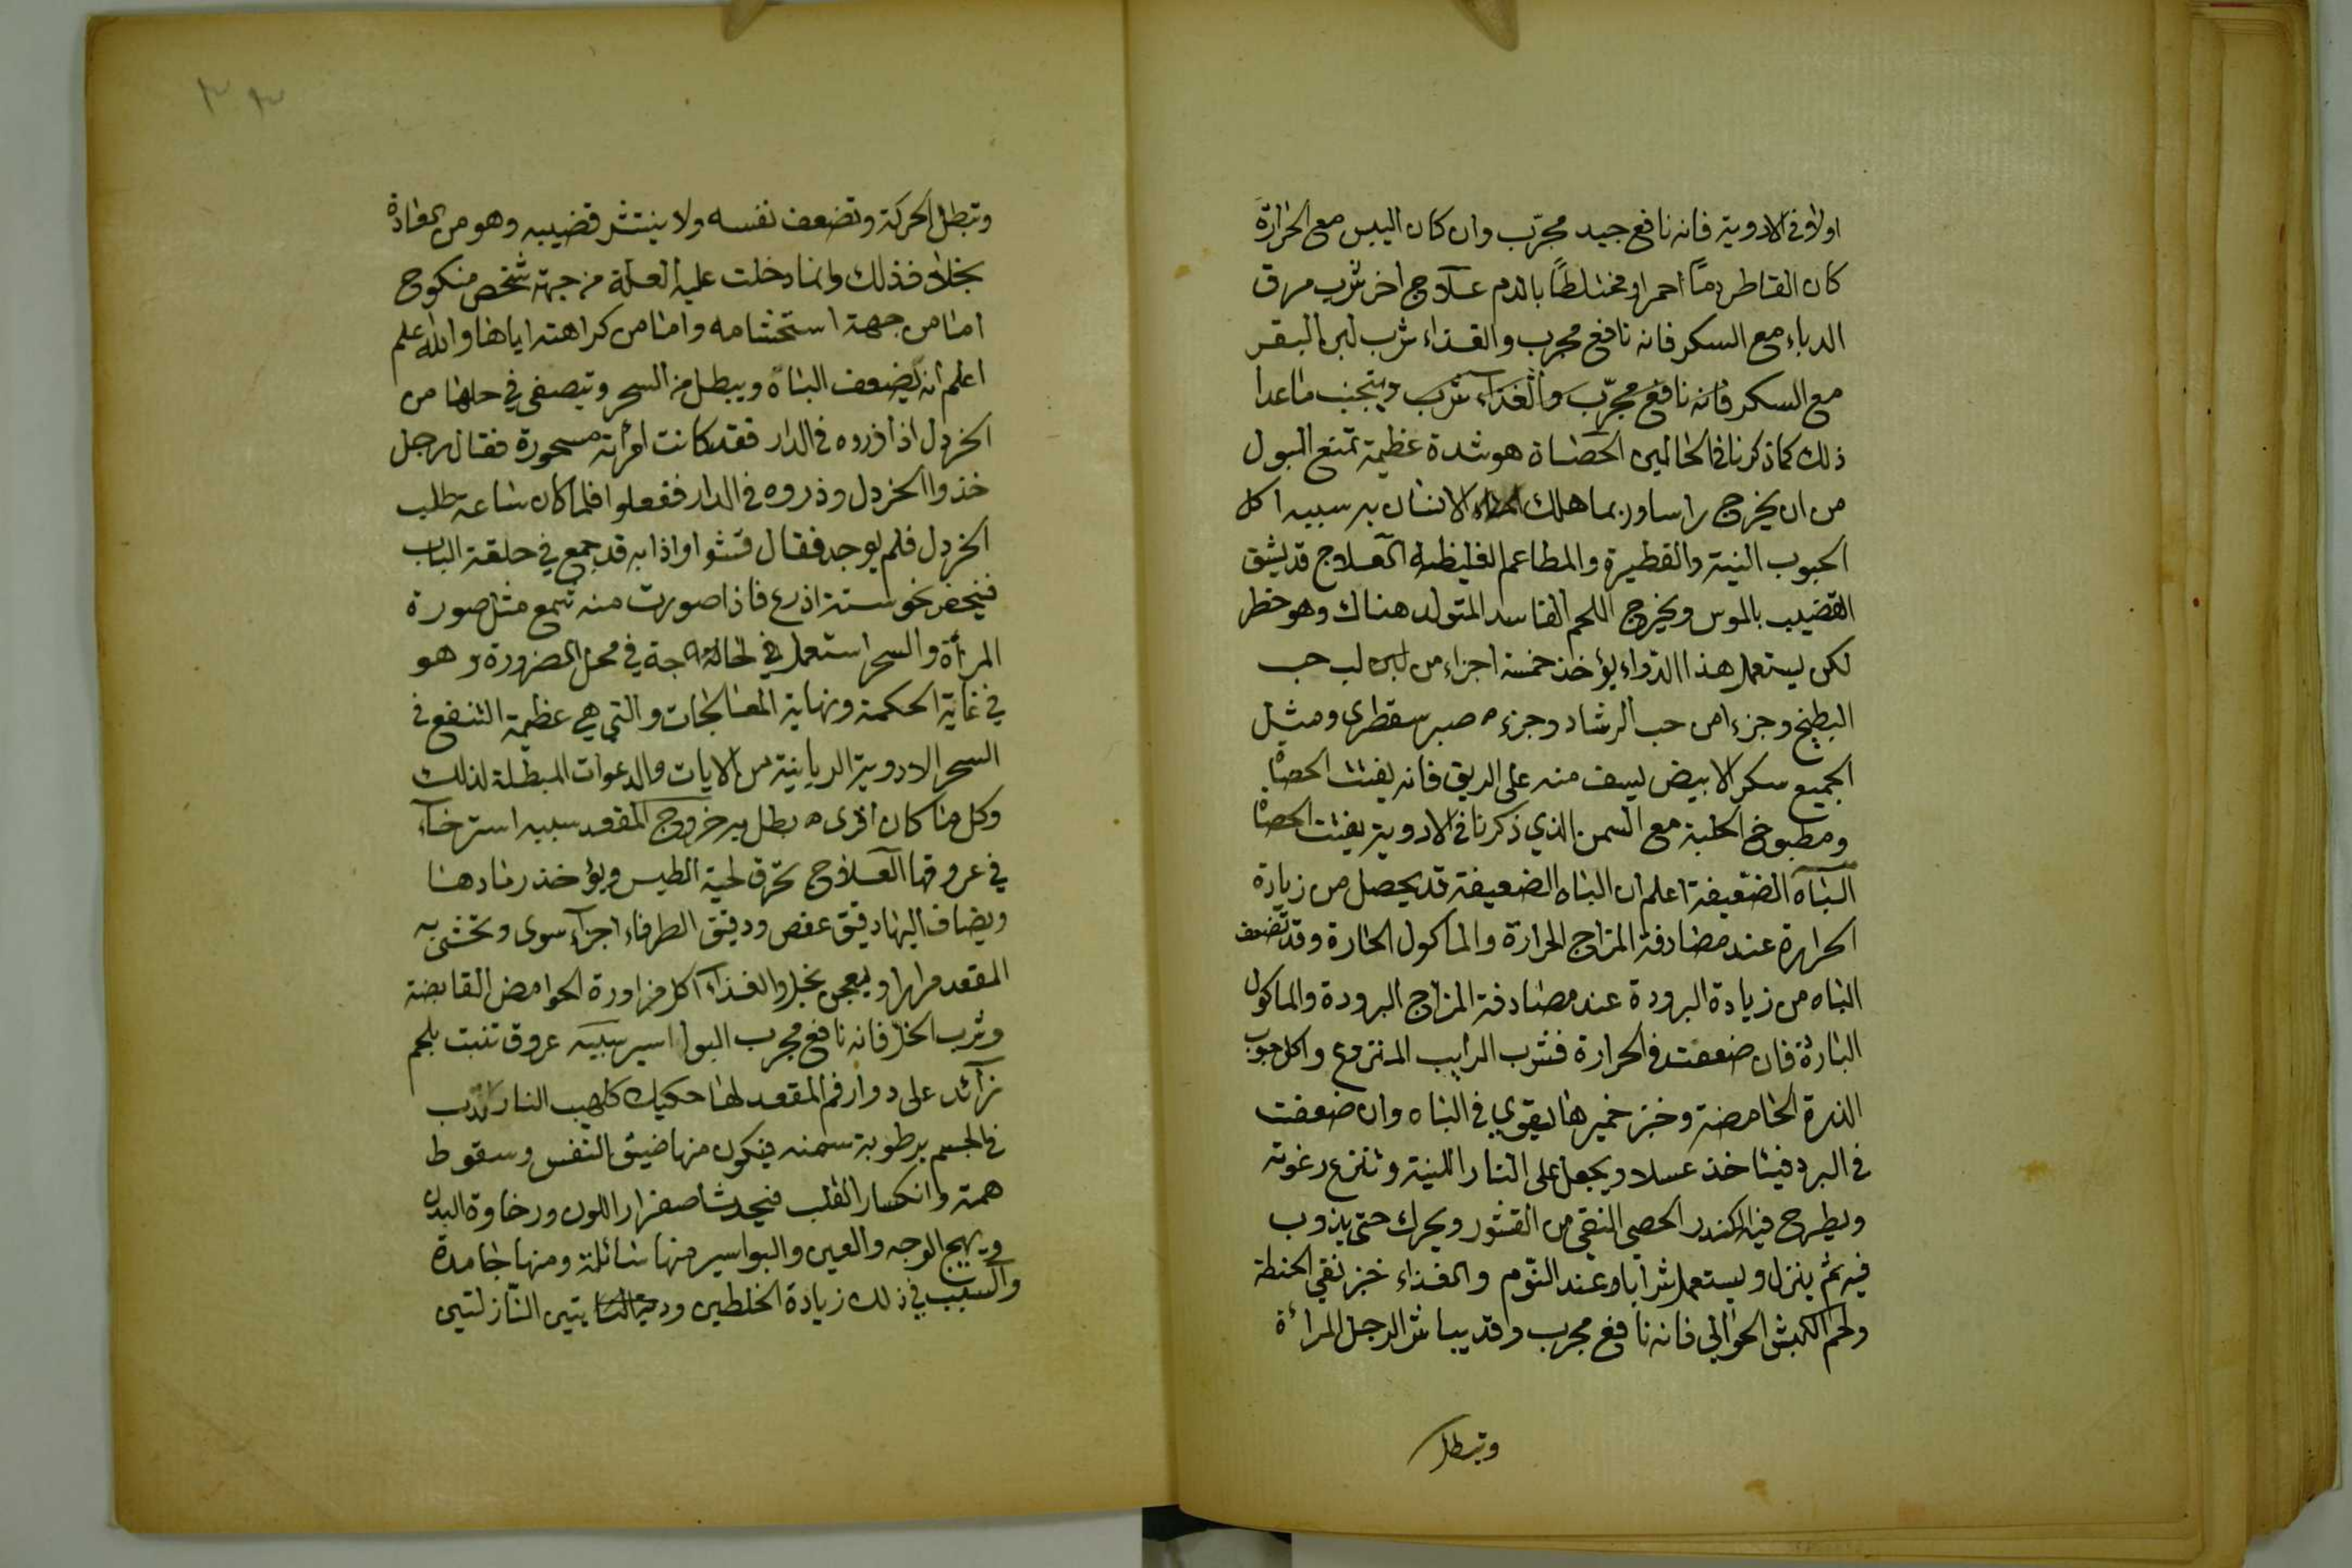 اولا في الادوية فانه نافع جيد مجرّب وان كان اليبس مع الحرارة
كان القاطر دمًا احمر او مختلطًا بالدم علاج اخر شرب مرق
الدباء مع السكر فانه نافع مجرب والغذاء شرب لبن البقر
مع السكر فانه نافع مجرّب والغذاء شرب ويتجنب ما عدا
ذلك كما ذكرنا في الحالبين الحصاة هو شدة عظيمة تمنع البول
من ان يخرج راسا وربما هلك الانسان به سببه اكل
الحبوب النية والفطيرة والمطاعم الغليظة العلاج قد يشق
القضيب بالموس ويخرج اللحم الفاسد المتولد هناك وهو خطر
لكن يستعمل هذا الدواء يؤخذ خمسة اجزاء من لبن لب حب
البطيخ وجزءا من حب الرشاد وجزء صبر سقطرى ومثل
الجميع سكر الابيض يسف منه على الريق فانه يفتت الحصاة
ومطبوخ الحلبة مع السمن الذي ذكرنا في الادوية يفتت الحصاة
الباه الضعيفة اعلم ان الباه الضعيفة قد يحصل من زيادة
الحرارة عند مصادفة المزاج الحرارة والماكول الحارة وقد تضعف
الباه من زيادة البرودة عند مصادفة المزاج البرودة والماكول
الباردة فان ضعفت في الحرارة فشرب الرايب المنزوع واكل حبوب
الذرة الحامضة وخبز خميرها يقوي في الباه وان ضعفت
في البرد فيتاخذ عسلا ويجعل على النار اللينة وتنزع رغوته
ويطرح فيه الكندر الحصى النقي من القشور ويحرك حتى يذوب
فيه ثم ينزل ويستعمل شرابا وعند النوم والغذاء خبز نقي الحنطة
ولحم الكبش الحوالي فانه نافع مجرب وقد يباشر الرجل المراة
وتبطل
٣٣
وتبطل الحركة وتضعف نفسه ولا ينتشر قضيبه وهو من
بخلاف ذلك وانما دخلت عليه العلة من جهة شخص منكوح
اما من جهة استحشامه واما من كراهته اياها والله اعلم
اعلم انه يضعف الباه ويبطل من السحر في حلها من
الخردل اذا ذروه في الدار فقد كانت امراة مسحورة فقال رجل
خذوا الخردل وذروه في الدار ففعلوا فلما كان ساعة طلب
الخردل فلم يوجد فقال فتشوا واذا به قد جمع في حلقة الباب
فيحفر نحو ستة اذرع فاذا صورت منه شمع مثل صورة
المرأة والسحر استعمل في في محل الضرورة وهو
في غاية الحكمة ونهاية المعالجات والتي هي عظيمة النفع في
السحر الادوية الربانية من الايات والدعوات المبطلة لذلك
وكل ما كان اقرى بطل به خروج المقعد سببه استرخاء
في عروقها العلاج تحرق لحية الطيس ويؤخذ رمادها
ويضاف اليها دقيق عفص ودقيق الطرفاء اجزآء سوى وتحشى به
المقعد مرارا ويعجن بخل والغذاء اكل مزاورة الحوامض القابضة
وشرب الخل فانه نافع مجرب البواسير سببه عروق تنبت بلحم
زآئد على دوار فم المقعد لها حكيك كلهيب النار تدب
في الجسم برطوبة سمنه فيكون منها ضيق النفس وسقوط
همته وانكسار القلب فيحدث اصفرار اللون ورخاوة البدن
ويهيج الوجه والعين والبواسير منها سائلة ومنها جامدة
والسبب في ذلك زيادة الخلطين النازلتين